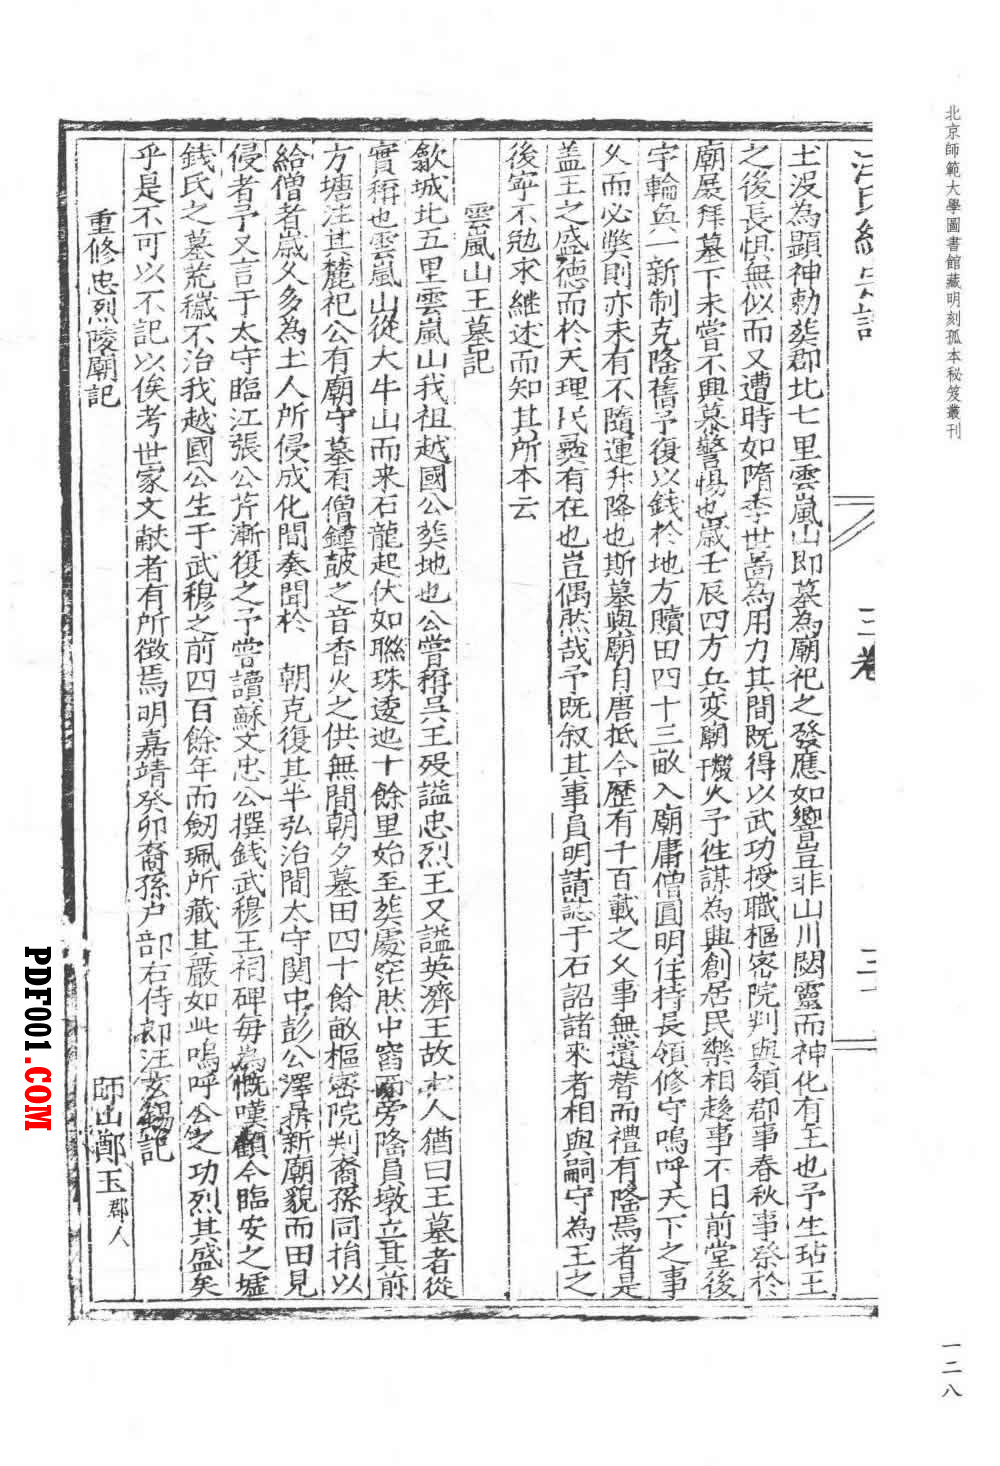 北京師範大學圖書館藏明刻孤本秘笈叢刊
一二八
三卷
土没為顯神勅葬郡北七里雲嵐山即墓為廟祀之發應如響豈非山川閟靈而神化有主也予生玷王
之後長惧無似而又遭時如隋季世啚為用力其間既得以武功授職樞密院判與領郡事春秋事祭於
廟展拜墓下未嘗不興慕警惕也嵗壬辰四方兵変廟燬火予徃謀為興創居民樂相趍事不日前堂後
宇輪奐一新制克隆舊予復以錢於地方贖田四十三畝入廟庸僧圓明住持長領修守嗚呼天下之事
久而必獘則亦未有不隨運升降也斯墓與廟自唐抵今歷有千百載之久事無遺替而禮有隆焉者是
盖王之盛德而於天理民彝有在也豈偶然哉予既叙其事員明請誌于石詔諸来者相與嗣守為王之
後寜不勉求継述而知其所本云
雲嵐山王墓記
歙城北五里雲嵐山我祖越國公葬地也公嘗稱吳王殁謚忠烈王又謚英濟王故土人猶曰王墓者從
實稱也雲嵐山從大牛山而来石龍起伏如聯珠逶迤十餘里始至葬處窊然中窩兩旁隆員墩立其前
方塘注其麓祀公有廟守墓有僧鐘皷之音香火之供無間朝夕墓田四十餘畝樞密院判裔孫同捐以
給僧者嵗久多為土人所侵成化間奏聞於 朝克復其半弘治間太守関中彭公澤鼎新廟貌而田見
侵者予又言于太守臨江張公芹漸復之予嘗讀蘇文忠公撰錢武穆王祠碑每為慨嘆顧今臨安之墟
錢氏之墓荒穢不治我越國公生于武穆之前四百餘年而劒珮所藏其嚴如此嗚呼公之功烈其盛矣
乎是不可以不記以俟考世家文獻者有所徴焉明嘉靖癸卯裔孫户部右侍郎汪玄錫記
重修忠烈陵廟記
師山鄭玉郡人
PDF001.COM